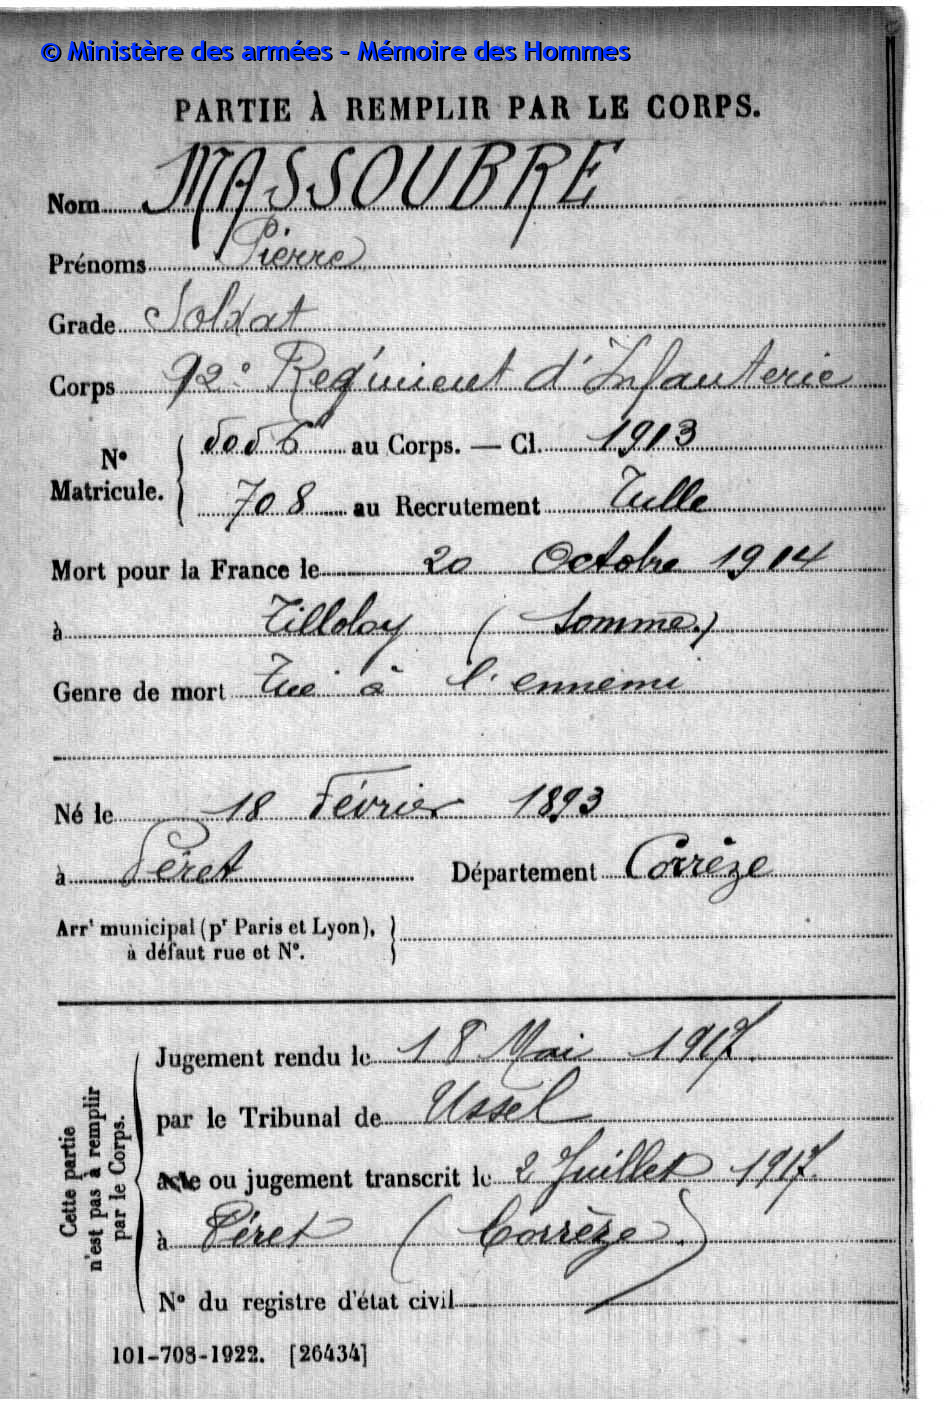 © Ministère des armées - Mémoire des Hommes
PARTIE À REMPLIR PAR LE CORPS.
Nom MASSOUBRE
Prénoms Pierre
Grade Soldat
Corps 92e Régiment d'Infanterie
N° Matricule. { 5056 au Corps. — Cl. 1913
708 au Recrutement Tulle
Mort pour la France le 20 Octobre 1914
à Tilloloy (Somme.)
Genre de mort Tué à l'ennemi
Né le 18 Février 1893
à Péret Département Corrèze
Arrt municipal (pr Paris et Lyon), }
à défaut rue et N°.
Cette partie n'est pas à remplir par le Corps.
Jugement rendu le 18 Mai 1917.
par le Tribunal de Ussel
acte ou jugement transcrit le 2 Juillet 1917.
à Péret (Corrèze.)
N° du registre d'état civil
101-708-1922. [26434]